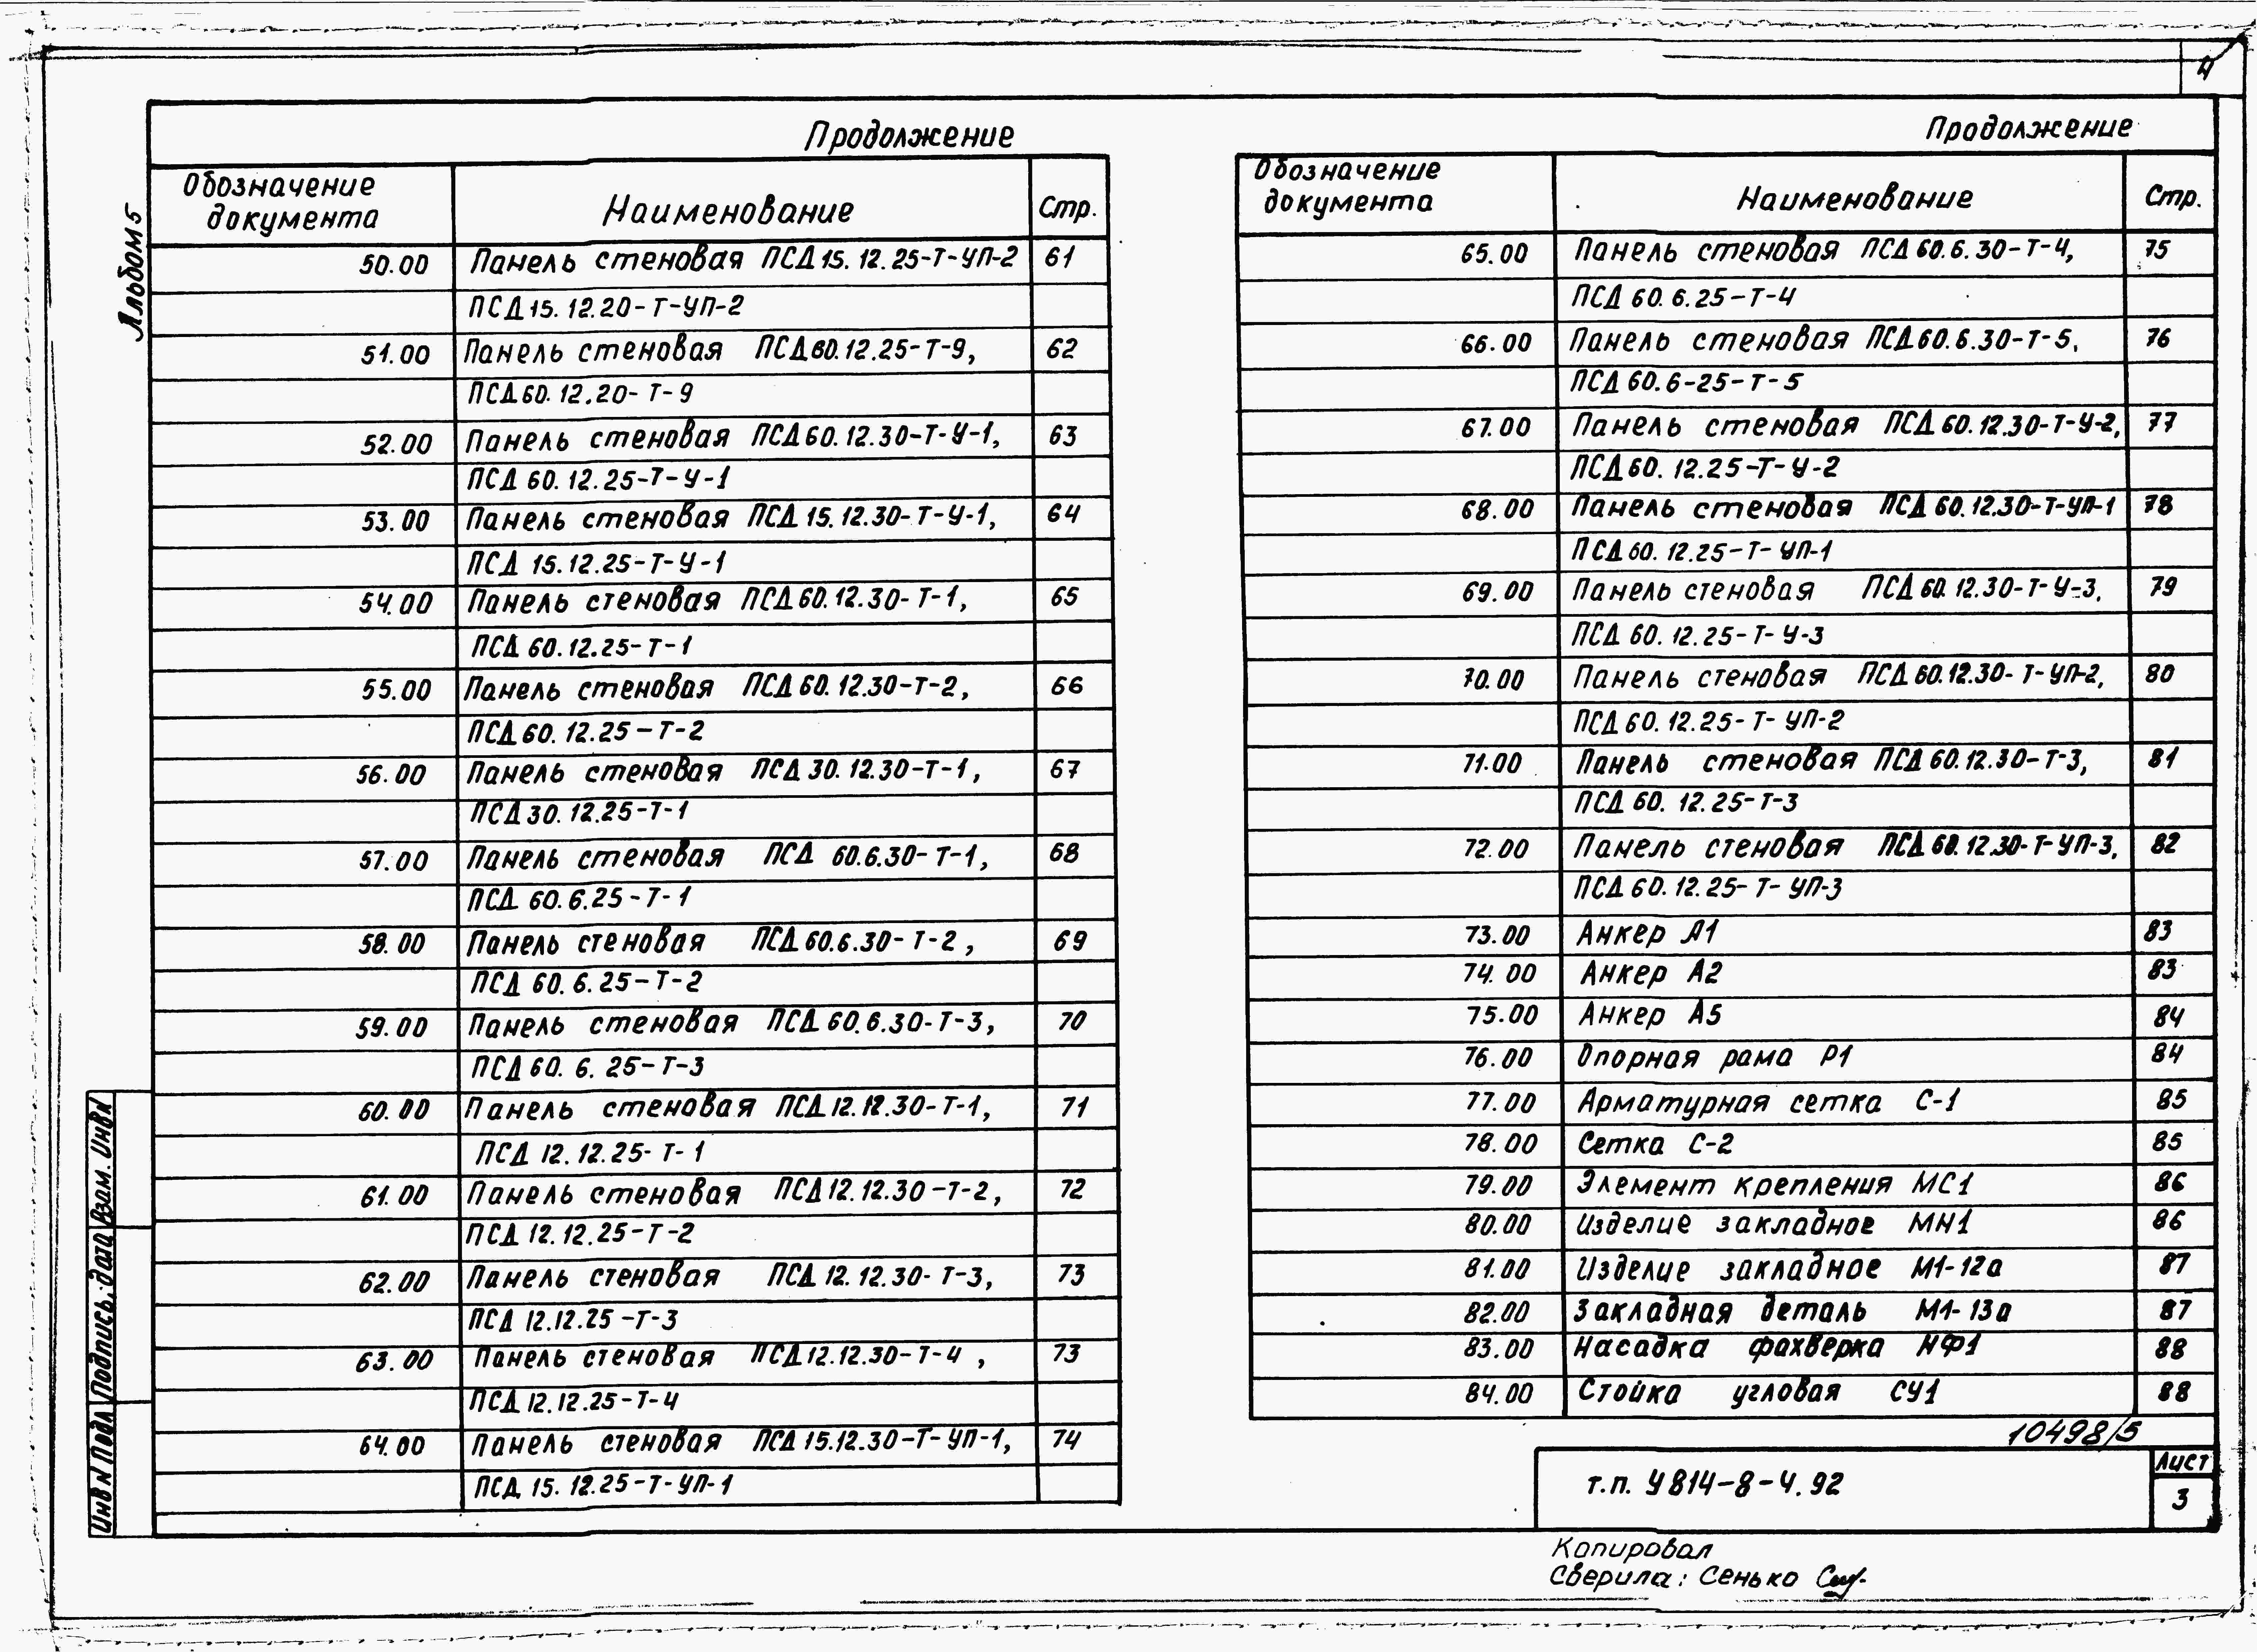 4
Альбом 5
Продолжение
Обозначение документа Наименование Стр.
50.00 Панель стеновая ПСД 15.12.25-Т-УП-2 61
ПСД 15.12.20-Т-УП-2
51.00 Панель стеновая ПСД 60.12.25-Т-9, 62
ПСД 60.12.20-Т-9
52.00 Панель стеновая ПСД 60.12.30-Т-У-1, 63
ПСД 60.12.25-Т-У-1
53.00 Панель стеновая ПСД 15.12.30-Т-У-1, 64
ПСД 15.12.25-Т-У-1
54.00 Панель стеновая ПСД 60.12.30-Т-1, 65
ПСД 60.12.25-Т-1
55.00 Панель стеновая ПСД 60.12.30-Т-2, 66
ПСД 60.12.25-Т-2
56.00 Панель стеновая ПСД 30.12.30-Т-1, 67
ПСД 30.12.25-Т-1
57.00 Панель стеновая ПСД 60.6.30-Т-1, 68
ПСД 60.6.25-Т-1
58.00 Панель стеновая ПСД 60.6.30-Т-2, 69
ПСД 60.6.25-Т-2
59.00 Панель стеновая ПСД 60.6.30-Т-3, 70
ПСД 60.6.25-Т-3
60.00 Панель стеновая ПСД 12.12.30-Т-1, 71
ПСД 12.12.25-Т-1
61.00 Панель стеновая ПСД 12.12.30-Т-2, 72
ПСД 12.12.25-Т-2
62.00 Панель стеновая ПСД 12.12.30-Т-3, 73
ПСД 12.12.25-Т-3
63.00 Панель стеновая ПСД 12.12.30-Т-4, 73
ПСД 12.12.25-Т-4
64.00 Панель стеновая ПСД 15.12.30-Т-УП-1, 74
ПСД 15.12.25-Т-УП-1
Продолжение
Обозначение документа Наименование Стр.
65.00 Панель стеновая ПСД 60.6.30-Т-4, 75
ПСД 60.6.25-Т-4
66.00 Панель стеновая ПСД 60.6.30-Т-5, 76
ПСД 60.6-25-Т-5
67.00 Панель стеновая ПСД 60.12.30-Т-У-2, 77
ПСД 60.12.25-Т-У-2
68.00 Панель стеновая ПСД 60.12.30-Т-УП-1 78
ПСД 60.12.25-Т-УП-1
69.00 Панель стеновая ПСД 60.12.30-Т-У-3, 79
ПСД 60.12.25-Т-У-3
70.00 Панель стеновая ПСД 60.12.30-Т-УП-2, 80
ПСД 60.12.25-Т-УП-2
71.00 Панель стеновая ПСД 60.12.30-Т-3, 81
ПСД 60.12.25-Т-3
72.00 Панель стеновая ПСД 60.12.30-Т-УП-3, 82
ПСД 60.12.25-Т-УП-3
73.00 Анкер А1 83
74.00 Анкер А2 83
75.00 Анкер А5 84
76.00 Опорная рама Р1 84
77.00 Арматурная сетка С-1 85
78.00 Сетка С-2 85
79.00 Элемент крепления МС1 86
80.00 Изделие закладное МН1 86
81.00 Изделие закладное М1-12а 87
82.00 Закладная деталь М1-13а 87
83.00 Насадка фахверка НФ1 88
84.00 Стойка угловая СУ1 88
10498/5
т.п. У814-8-4.92
Лист
3
Инв N Подл Подпись, дата Взам. Инв N
Копировал
Сверила: Сенько